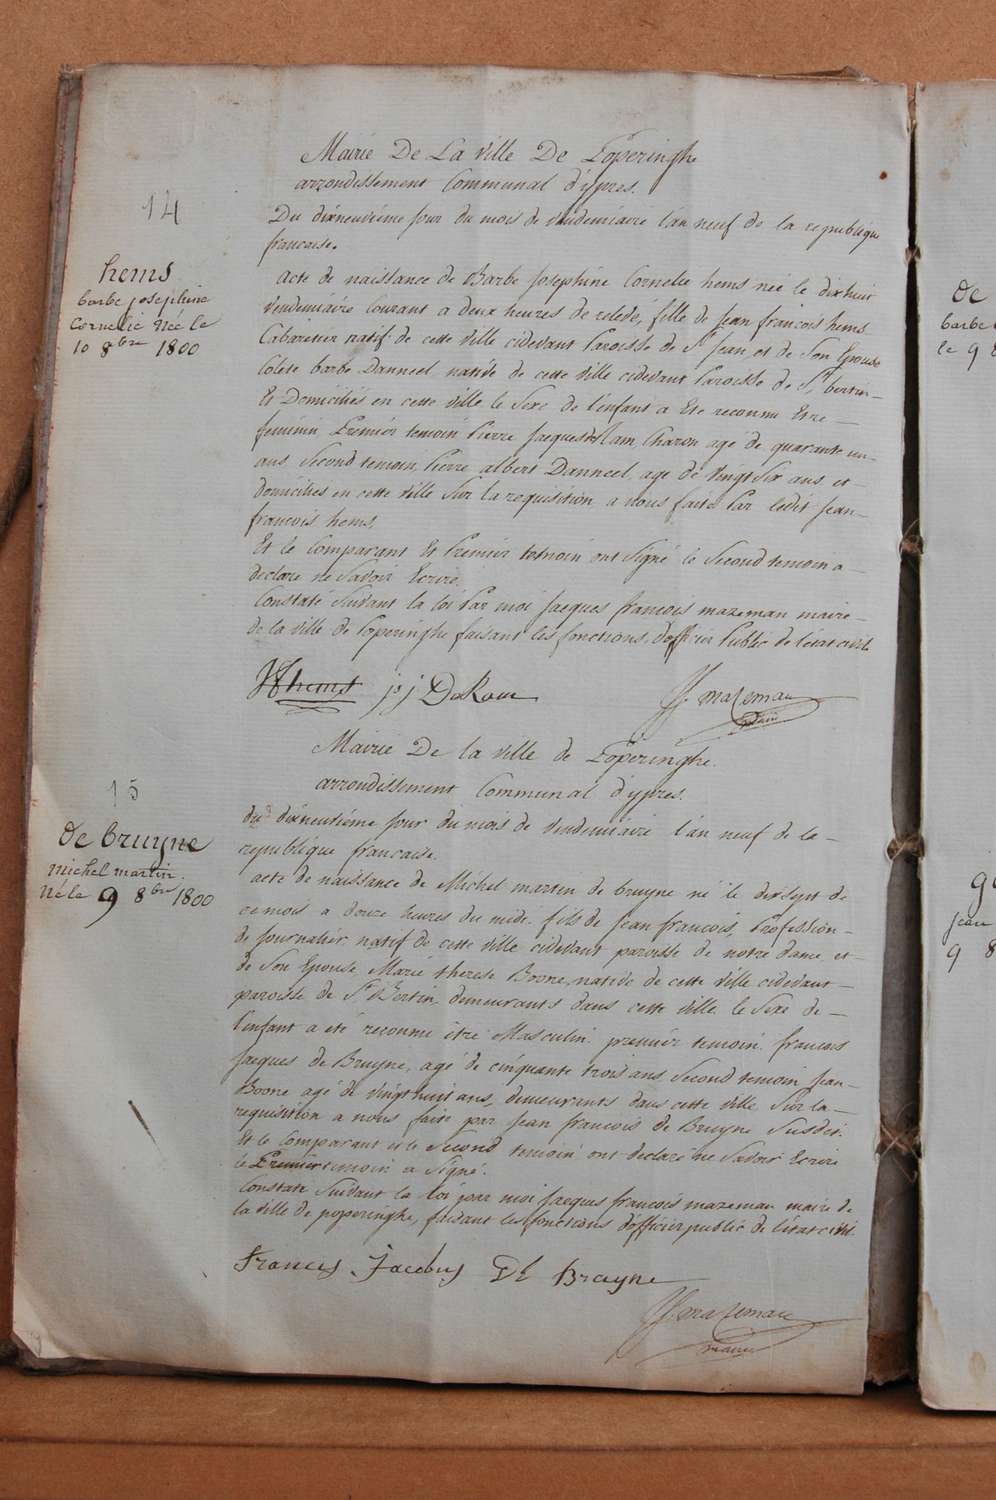 Mairie De La ville De Poperinghe
arrondissement Communal d'ypres.
14
Du dixneuvième jour du mois de vendemiaire l'an neuf de la republique
francaise.
hems
barbe josephine
Cornelie Née le
10 8bre 1800
Acte de naissance de Barbe Josephine Cornelie hems née le dixhuit
Vendemiaire Courant a deux heures de relevé, fille de jean francois hems
Cabaretier natif de cette ville cidevant Paroisse de St jean, et de Son Epouse
Colete barbe Danneel native de cette ville cidevant Paroisse de St bertin
Et Domiciliés en cette ville le Sexe de l'enfant a Eté reconnu Etre
feminin Premier temoin Pierre Jaeques Charon agé de quarante un
ans, Second temoin Pierre albert Danneel, age de Vingt Six ans et
domiciliés en cette ville Sur la requisition a nous faite Par ledit jean
francois hems.
Et le Comparant Et Premier temoin ont Signé le Second temoin a
declare ne Savoir Ecrire.
Constaté Suivant la loi Par moi Jaeques francois mazeman maire
de la ville de Poperinghe faisant les fonctions d'officier Public de l'etat civil
hems j j DeRoun
JF mazeman
maire
Mairie De la ville de Poperinghe.
arrondissement Communal d'ypres.
15
du dixneuvième jour du mois de Vendemiaire l'an neuf de la
republique francaise.
de bruyne
michel martin.
Né le 9 8bre 1800
acte de naissance de Michel marten de bruyne né le dixsept de
ce mois a douze heures du midi. fils de jean francois, Profession
de journalier natif de cette ville cidevant paroisse de notre dame, et
de Son Epouse Marie therese Boone, native de cette ville cidevant
paroisse de St Bertin demeurants dans cette ville le Sexe de
l'enfant a eté reconnu être Masculin premier temoin francois
Jaeques de Bruyne, agé de cinquante trois ans Second temoin jean
Boone agé de vingt huit ans, demeurants dans cette ville Sur la
requisition a nous faite par jean francois de Bruyne Susdit.
Et le Comparant et le Second temoin ont declaré ne Savoir Ecrire
le Premier temoin a Signé.
Constaté Suivant la loi par moi Jaeques francois mazeman maire de
la ville de poperinghe, faisant les fonctions d'officier public de l'état civil
Francis Jacobus De Bruyne
JF mazeman
maire
de
barbe
le 9
jean
9 8